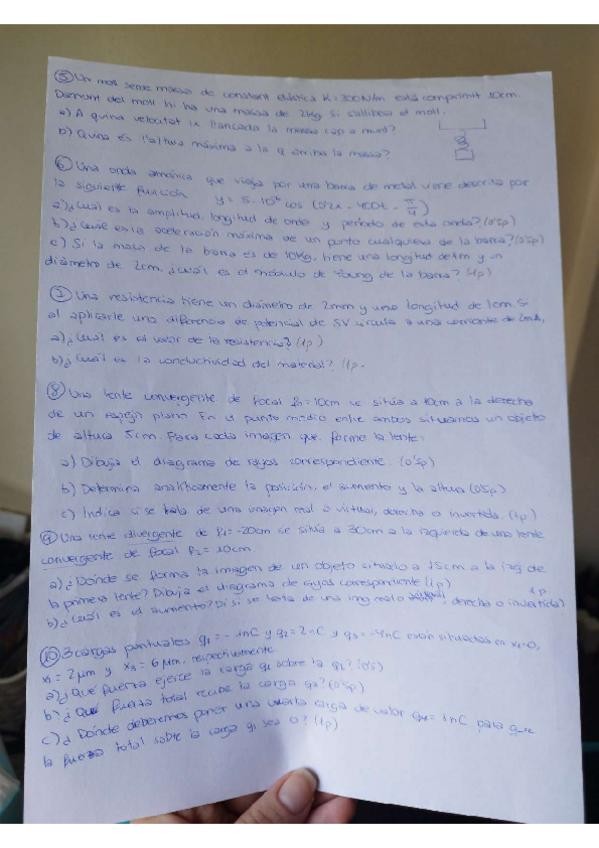 ⑤ Un moll sense massa de constant elàstica K=300N/m està comprimit 10cm.
Damunt del moll hi ha una massa de 2kg si s'allibera el moll.
a) A quina velocitat ix llançada la massa cap a munt?
b) Quina és l'altura màxima a la q arriba la massa?
⑥ Una onda armónica que viaja por una barra de metal viene descrita por
la siguiente función y = 5·10⁻⁶ cos (0'2x - 400t - π/4)
a) ¿Cuál es la amplitud, longitud de onda y período de esta onda? (0'5p)
b) ¿Cuál es la aceleración máxima de un punto cualquiera de la barra? (0'5p)
c) Si la masa de la barra es de 10kg, tiene una longitud de 1m y un
diámetro de 2cm. ¿Cuál es el módulo de Young de la barra? (1p)
⑦ Una resistencia tiene un diámetro de 2mm y una longitud de 1cm. Si
al aplicarle una diferencia de potencial de 5V circula una corriente de 2mA,
a) ¿Cuál es el valor de la resistencia? (1p)
b) ¿Cuál es la conductividad del material? (1p.
⑧ Una lente convergente de focal f₀=10cm se sitúa a 10cm a la derecha
de un espejo plano. En el punto medio entre ambos situamos un objeto
de altura 5cm. Para cada imagen que forme la lente:
a) Dibuja el diagrama de rayos correspondiente. (0'5p)
b) Determina analíticamente la posición, el aumento y la altura (0'5p)
c) Indica si se trata de una imagen real o virtual, derecha o invertida. (1p)
⑨ Una lente divergente de f₁=-20cm se sitúa a 30cm a la izquierda de una lente
convergente de focal f₂=10cm
a) ¿Dónde se forma la imagen de un objeto situado a 15cm a la izq de
la primera lente? Dibuja el diagrama de rayos correspondiente (1p)
b) ¿Cuál es el aumento? Di si se trata de una img real o derecha o invertida? 1p
⑩ 3 cargas puntuales q₁=-1nC y q₂=2nC y q₃=-4nC están situadas en x₁=0,
x₂=2μm y x₃=6μm, respectivamente.
a) ¿Qué fuerza ejerce la carga q₁ sobre la q₂? (0'5)
b) ¿Qué fuerza total recibe la carga q₂? (0'5p)
c) ¿Dónde deberemos poner una cuarta carga de valor q₄=1nC para que
la fuerza total sobre la carga q₁ sea 0? (1p)